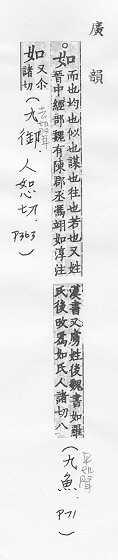 廣韻
。如
而也均也似也謀也往也若也又姓
晉中經部魏有陳郡丞馮翊如淳注
漢書又虜姓後魏書如羅
氏後改爲如氏人諸切八
(九魚 P71)
平聲
如
又尒
諸切
(九御 人恕切 P363)
去聲